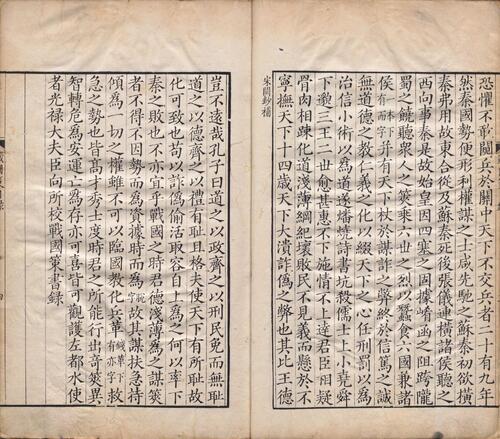 恐懼不敢闚兵於關中天下不交兵者二十有九年
然秦國勢便形利權謀之士咸先馳之蘇秦初欲橫
秦弗用故東合從及蘇秦死後張儀連橫諸侯聽之
西向事秦是故始皇因四塞之固據崤函之阻跨隴
蜀之饒聽衆人之筴乘六世之烈以蠶食六國兼諸
侯有而字并有天下杖於謀詐之弊終於信篤之誠
無道德之教仁義之化以綴天下之心任刑罰以爲
治信小術以爲道遂燔燒詩書坑殺儒士上小堯舜
下邈三王二世愈甚惠不下施情不上達君臣相疑
骨肉相疎化道淺薄綱紀壞敗民不見義而懸於不
寧撫天下十四歲天下大潰詐僞之弊也其比王德
宋闕鈔補
豈不遠哉孔子曰道之以政齊之以刑民免而無恥
道之以德齊之以禮有恥且格夫使天下有所恥故
化可致也苟以詐僞偷活取容自上爲之何以率下
秦之敗也不亦宜乎戰國之時君德淺薄爲之謀筴
者不得不因勢而爲資據時而爲故其謀扶急持
傾爲一切之權雖不可以臨國教化兵革錢革下有亦字救
急之勢也皆高才秀士度時君之所能行出奇筴異
智轉危爲安運亡爲存亦可喜皆可觀護左都水使
者光禄大夫臣向所校戰國策書錄